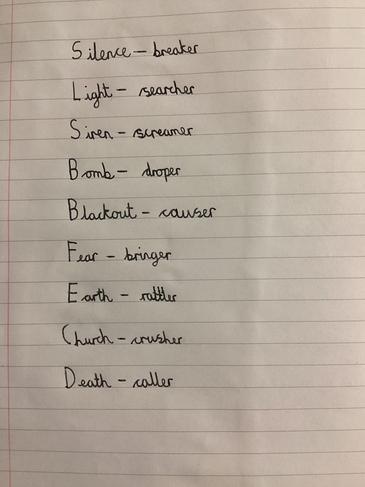 Silence - breaker
Light - searcher
Siren - screamer
Bomb - droper
Blackout - causer
Fear - bringer
Earth - rattler
Church - crusher
Death - caller